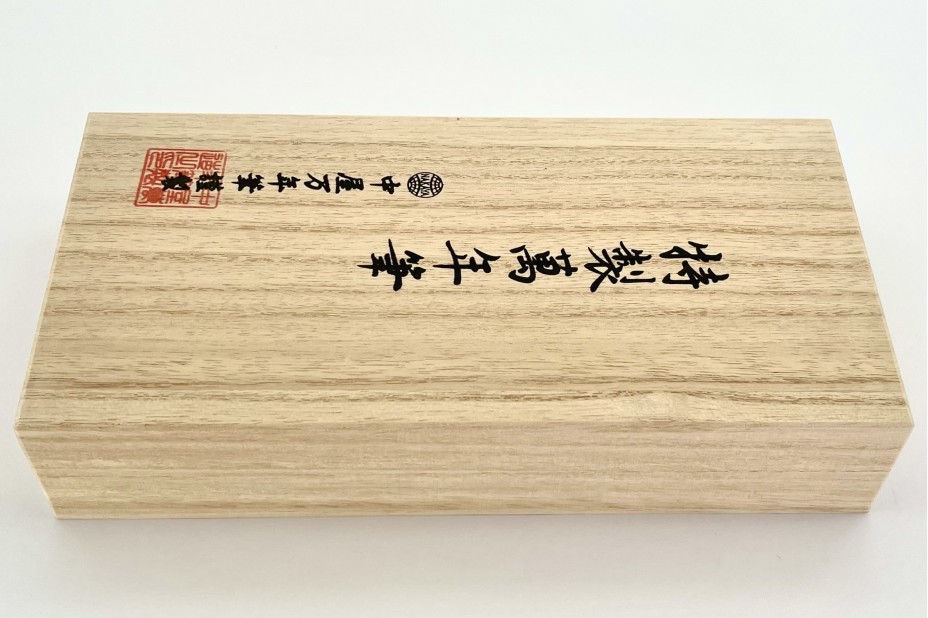 特製萬年筆
中屋万年筆 謹製